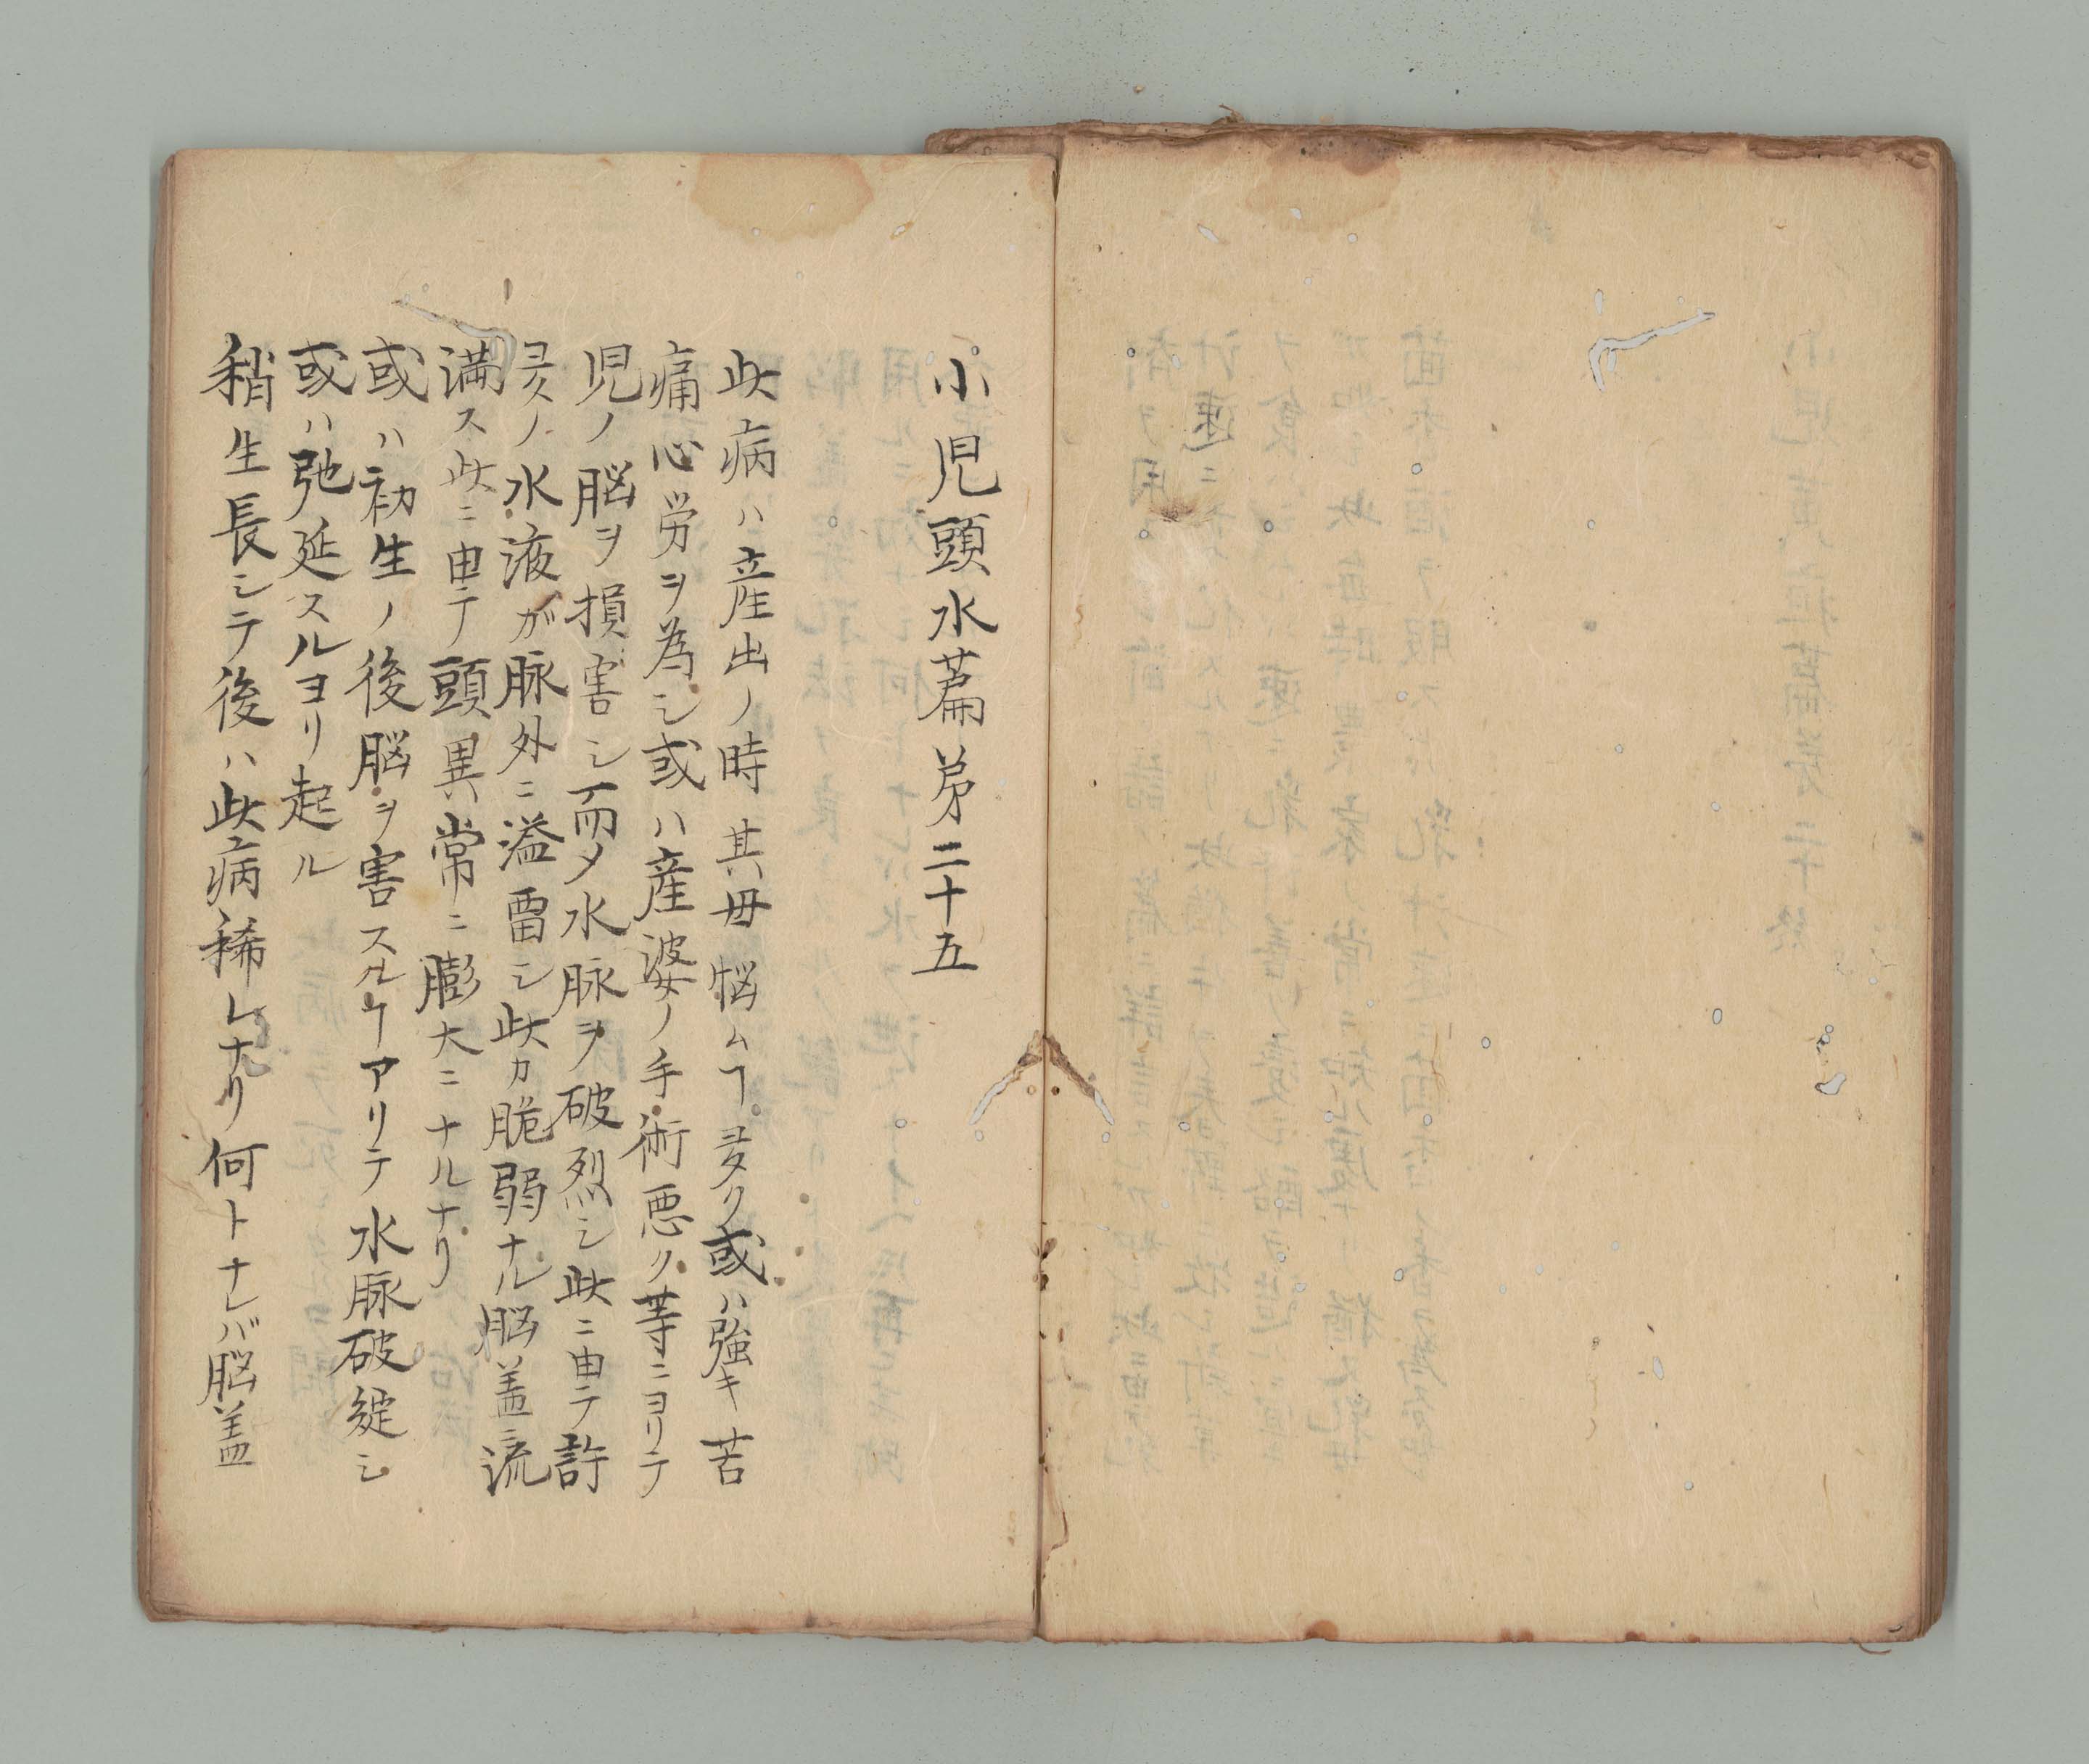 小児頭水萹苐二十五
此病ハ産出ノ時其母悩ムヿ夛クリ或ハ強キ苦
痛心労ヲ為シ或ハ産婆ノ手術悪ク等ニヨリテ
児ノ脳ヲ損害シ而メ水脉ヲ破烈シ此ニ由テ許
夛ノ水液ガ脉外ニ溢畱シ此カ脆弱ナル脳盖ニ流
満ス此ニ由テ頭異常ニ膨大ニナルナリ
或ハ初生ノ後脳ヲ害スルヿアリテ水脉破綻シ
或ハ弛延スルヨリ起ル
稍生長シテ後ハ此病稀レナリ何トナレバ脳盖